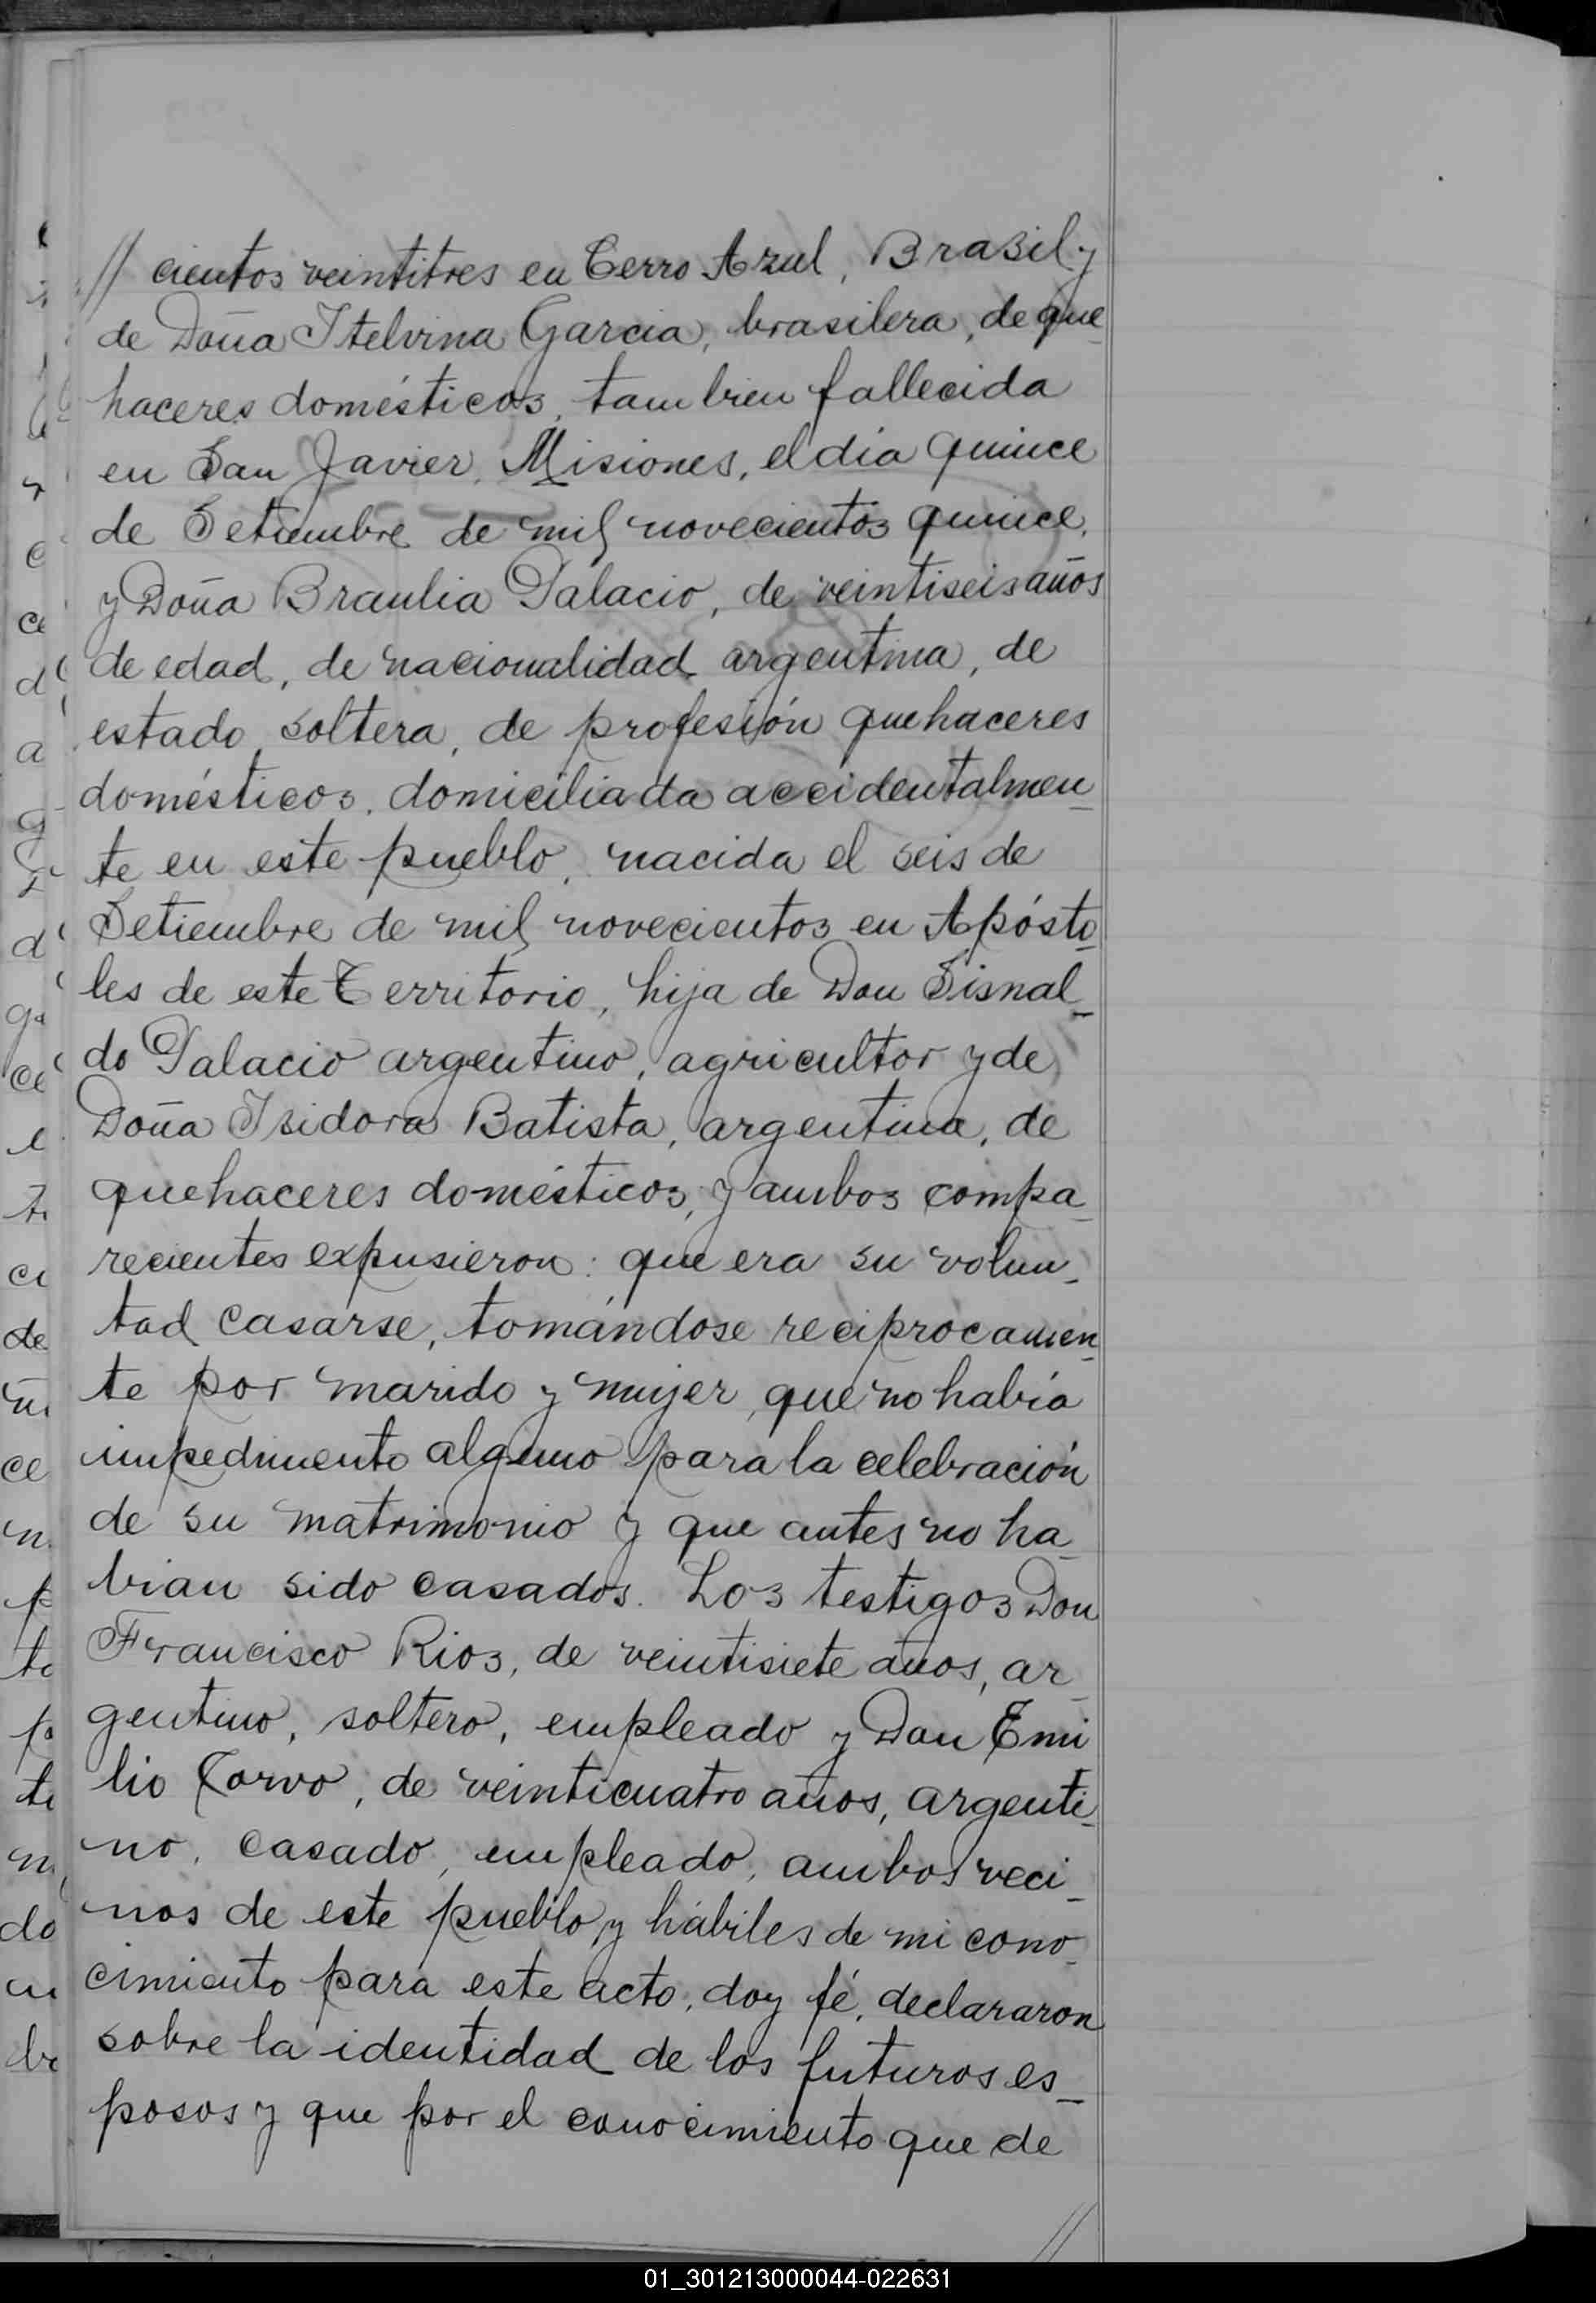 // cientos veintitres en Cerro Azul, Brasil y
de Doña Itelvina Garcia, brasilera, de que_
haceres domésticos, tambien fallecida
en San Javier, Misiones, el dia quince
de Setiembre de mil novecientos quince,
y Doña Braulia Palacio, de veintiseis años
de edad, de nacionalidad argentina, de
estado soltera, de profesión quehaceres
domésticos, domiciliada accidentalmen_
te en este pueblo, nacida el seis de
Setiembre de mil novecientos en Apósto_
les de este Territorio, hija de Don Sisnal_
do Palacio argentino, agricultor y de
Doña Isidora Batista, argentina, de
quehaceres domésticos, y ambos compa_
recientes expusieron: que era su volun_
tad casarse, tomándose reciprocamen_
te por marido y mujer, que no había
impedimento alguno para la celebración
de su matrimonio y que antes no ha_
bian sido casados. Los testigos Don
Francisco Rios, de veintisiete años, ar_
gentino, soltero, empleado y Don Emi
lio Torvo, de veinticuatro años, argenti_
no, casado, empleado, ambos veci_
nos de este pueblo y hábiles de mi cono_
cimiento para este acto, doy fé, declararon
sobre la identidad de los futuros es_
posos y que por el conocimiento que de
//
01_301213000044-022631